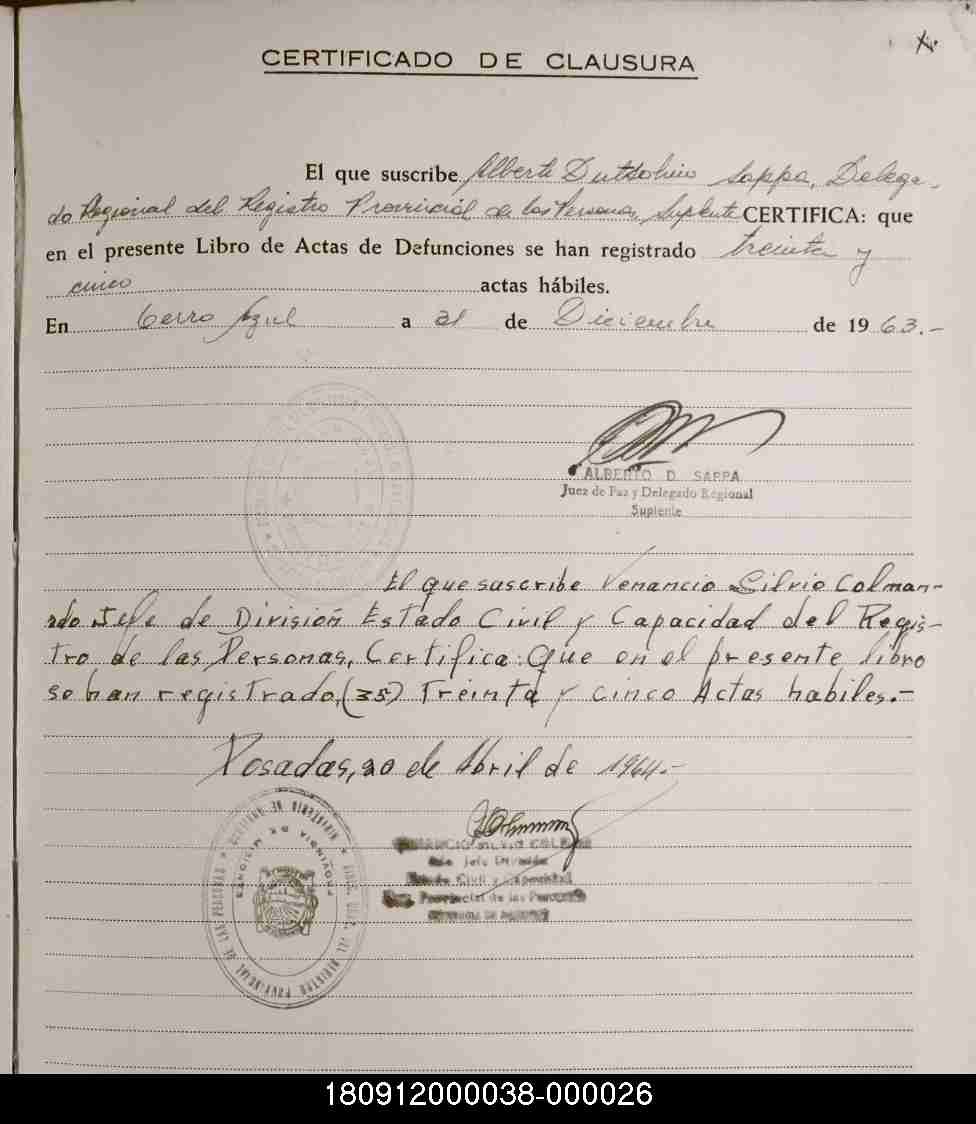 CERTIFICADO DE CLAUSURA
El que suscribe Alberto Sappa, Delega-
do Regional del Registro Provincial de las Personas, Suplente CERTIFICA: que
en el presente Libro de Actas de Defunciones se han registrado treinta y
cinco actas hábiles.
En Cerro Azul a 31 de Diciembre de 1963.-
ALBERTO D. SAPPA
Juez de Paz y Delegado Regional
Suplente
El que suscribe Venancio Silvio Colman-
Jefe de División Estado Civil y Capacidad del Regis-
tro de las Personas, Certifica: Que en el presente libro
se han registrado, (35) Treinta y cinco Actas habiles.-
Posadas, 20 de Abril de 1964.-
PROVINCIA DE MISIONES
180912000038-000026